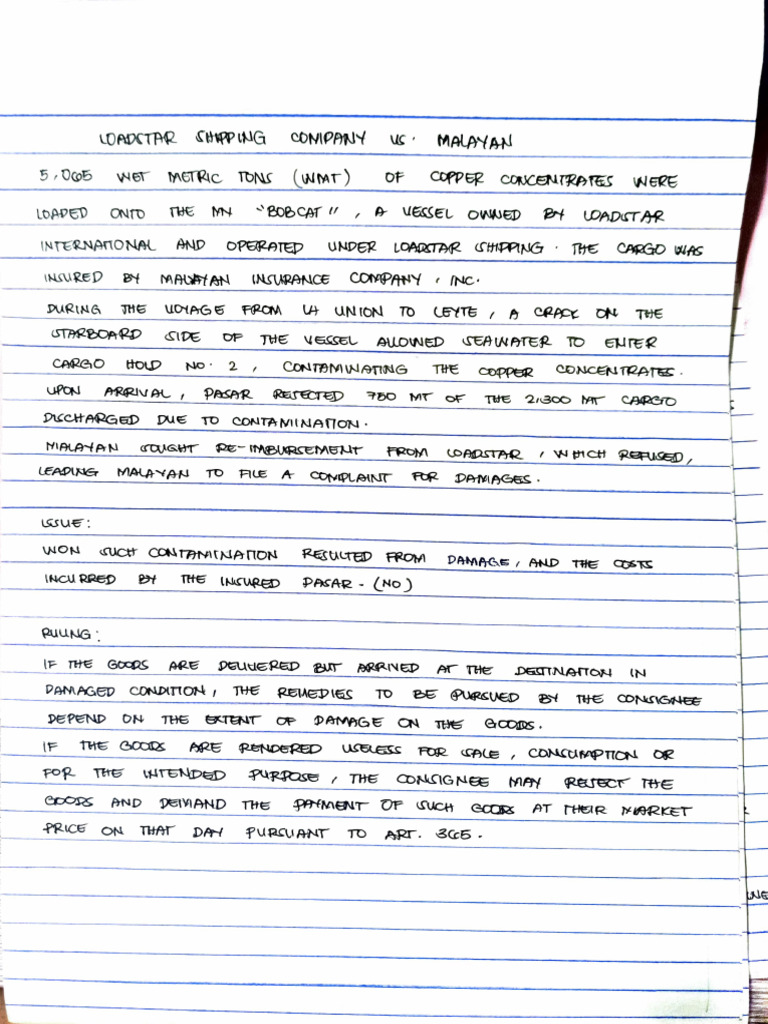 LOADSTAR SHIPPING COMPANY VS. MALAYAN
5,065 WET METRIC TONS (WMT) OF COPPER CONCENTRATES WERE
LOADED ONTO THE MV "BOBCAT", A VESSEL OWNED BY LOADSTAR
INTERNATIONAL AND OPERATED UNDER LOADSTAR SHIPPING. THE CARGO WAS
INSURED BY MALAYAN INSURANCE COMPANY, INC.
DURING THE VOYAGE FROM LA UNION TO LEYTE, A CRACK ON THE
STARBOARD SIDE OF THE VESSEL ALLOWED SEAWATER TO ENTER
CARGO HOLD NO. 2, CONTAMINATING THE COPPER CONCENTRATES.
UPON ARRIVAL, PASAR REJECTED 780 MT OF THE 2,300 MT CARGO
DISCHARGED DUE TO CONTAMINATION.
MALAYAN SOUGHT RE-IMBURSEMENT FROM LOADSTAR, WHICH REFUSED,
LEADING MALAYAN TO FILE A COMPLAINT FOR DAMAGES.
ISSUE:
WON SUCH CONTAMINATION RESULTED FROM DAMAGE, AND THE COSTS
INCURRED BY THE INSURED PASAR - (NO)
RULING:
IF THE GOODS ARE DELIVERED BUT ARRIVED AT THE DESTINATION IN
DAMAGED CONDITION, THE REMEDIES TO BE PURSUED BY THE CONSIGNEE
DEPEND ON THE EXTENT OF DAMAGE ON THE GOODS.
IF THE GOODS ARE RENDERED USELESS FOR SALE, CONSUMPTION OR
FOR THE INTENDED PURPOSE, THE CONSIGNEE MAY REJECT THE
GOODS AND DEMAND THE PAYMENT OF SUCH GOODS AT THEIR MARKET
PRICE ON THAT DAY PURSUANT TO ART. 365.